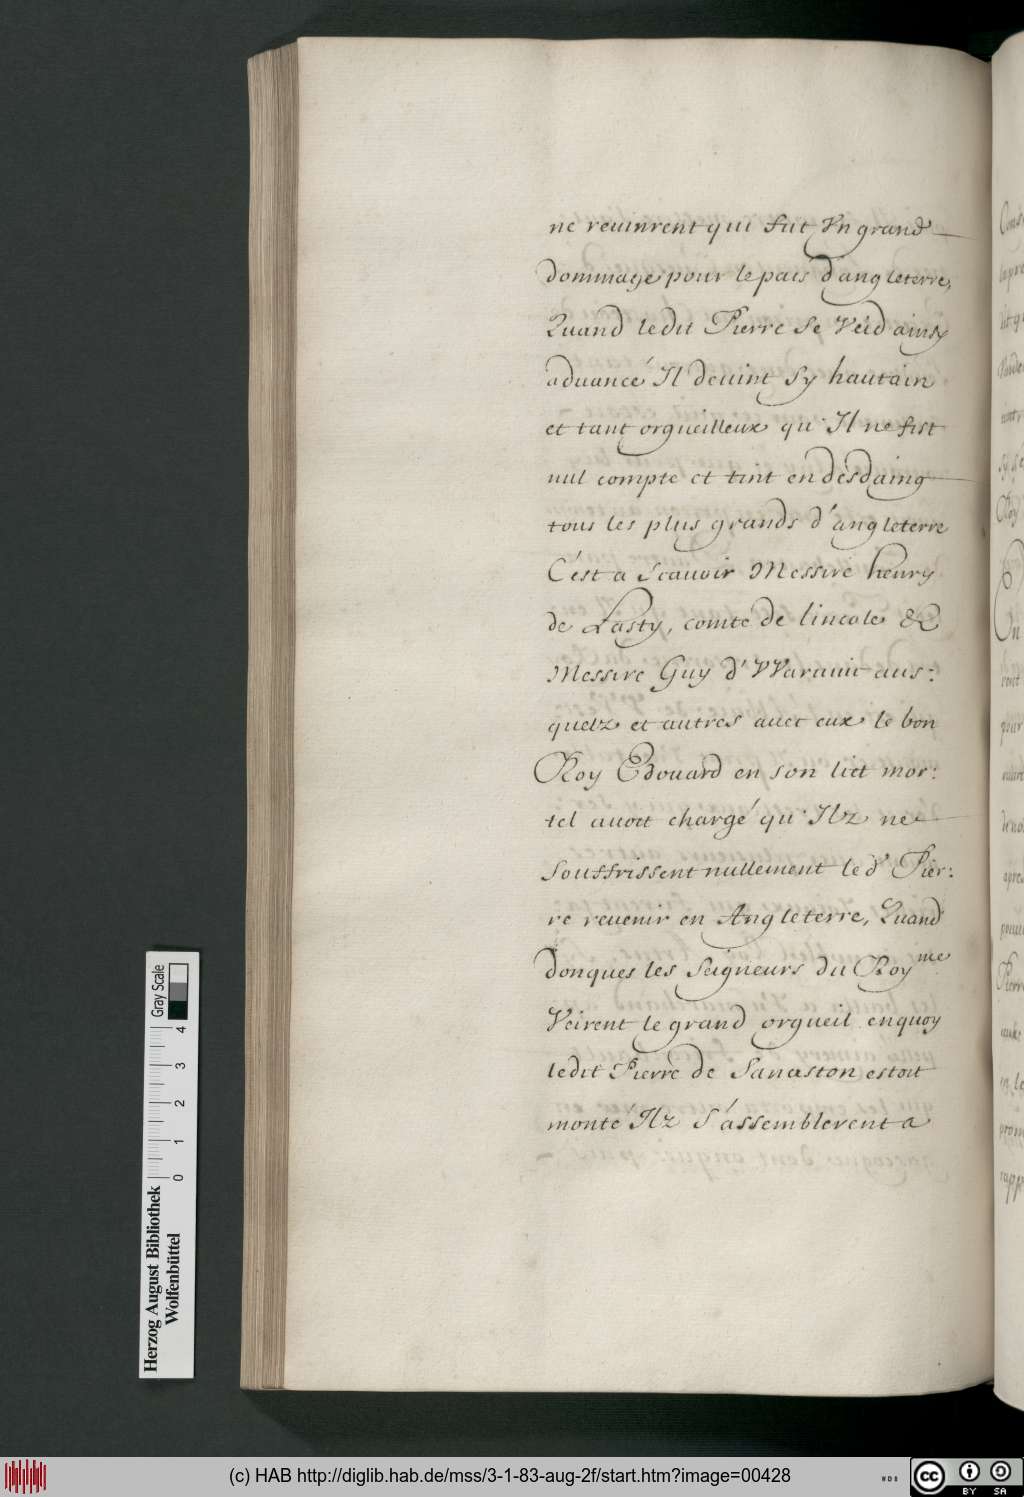 ne reuinrent qui fut Vn grand
dommage pour le païs d'angleterre,
Quand ledit Pierre Se Veid ainsy
aduancé Il deuint Sy hautain
et tant orgueilleux qu'Il ne fist
nul compte et tint en desdaing
tous les plus grands d'angleterre
C'est a Scauoir Messire henry
de Lasty, comte de lincole &
Messire Guy d'VVarauit aus:
quelz et autres auec eux le bon
Roy Edouard en son lict mor:
tel auoit chargé qu'Ilz ne
Souffrissent nullement le d' Pier:
re reuenir en Angleterre, Quand
donques les Seigneurs du Royme
Veirent le grand orgueil enquoy
ledit Pierre de Sanaston estoit
monté Ilz S'assemblerent a
Gray Scale
0 1 2 3 4
Herzog August Bibliothek
Wolfenbüttel
(c) HAB http://diglib.hab.de/mss/3-1-83-aug-2f/start.htm?image=00428
WDB
cc
BY SA